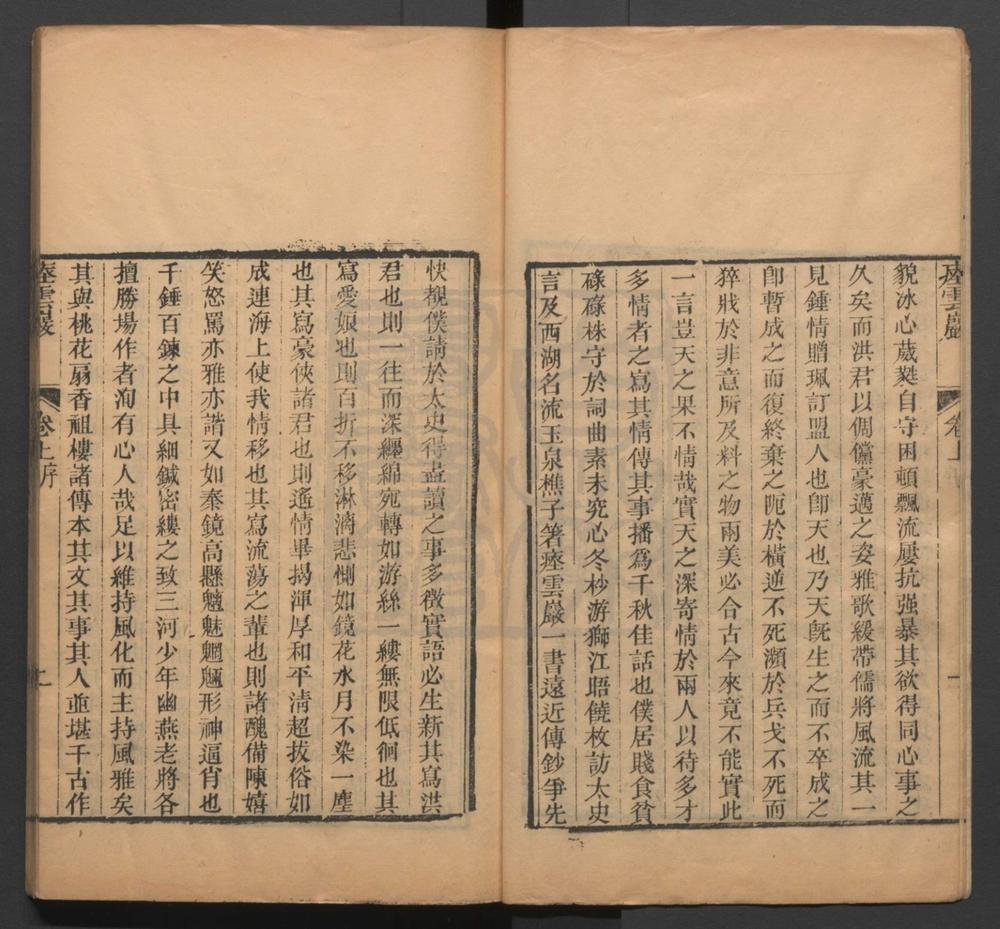 瘞雲巖
卷上
一
貌冰心葳蕤自守困頓飄流屢抗强暴其欲得同心事之
久矣而洪君以倜儻豪邁之姿雅歌緩帶儒將風流其一
見鍾情贈珮訂盟人也卽天也乃天旣生之而不卒成之
卽暫成之而復終棄之阨於橫逆不死瀕於兵戈不死而
猝戕於非意所及料之物兩美必合古今來竟不能實此
一言豈天之果不情哉實天之深寄情於兩人以待多才
多情者之寫其情傳其事播爲千秋佳話也僕居賤食貧
碌碌株守於詞曲素未究心冬杪游獅江晤饒枚訪太史
言及西湖名流玉泉樵子箸瘞雲巖一書遠近傳鈔爭先
快覩僕請於太史得盡讀之事多徵實語必生新其寫洪
君也則一往而深纒綿宛轉如游絲一縷無限低徊也其
寫愛娘也則百折不移淋漓悲惻如鏡花水月不染一塵
也其寫豪俠諸君也則遙情畢揭渾厚和平淸超拔俗如
成連海上使我情移也其寫流蕩之輩也則諸醜備陳嬉
笑怒罵亦雅亦諧又如秦鏡高懸魑魅魍魎形神逼肖也
千錘百鍊之中具細鍼密縷之致三河少年幽燕老將各
擅勝場作者洵有心人哉足以維持風化而主持風雅矣
其與桃花扇香祖樓諸傳本其文其事其人並堪千古作
瘞雲巖
卷上序